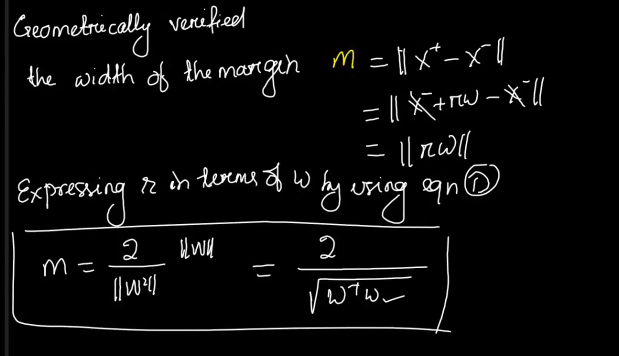 Geometrically verified
the width of the margin m = || x⁺ - x⁻ ||
= || x⁻ + rw - x⁻ ||
= || rw ||
Expressing r in terms of w by using eqn ①
m = 2 / ||w²|| ||w|| = 2 / √(wᵀw)